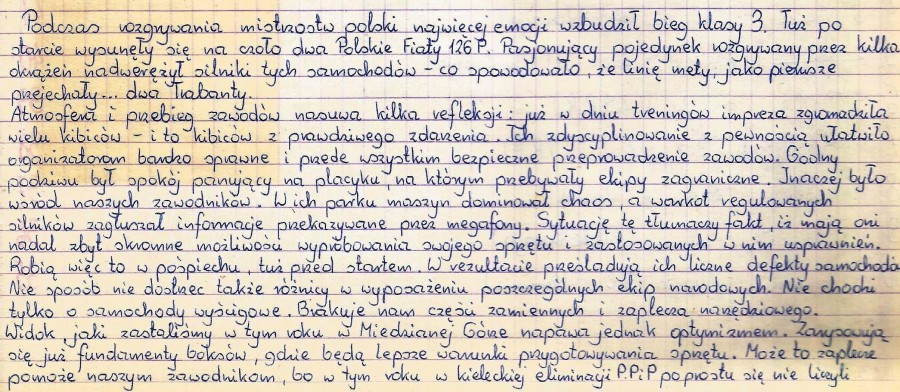 Podczas rozgrywania mistrzostw polski najwięcej emocji wzbudził bieg klasy 3. Tuż po
starcie wysunęły się na czoło dwa Polskie Fiaty 126P. Pasjonujący pojedynek rozgrywany przez kilka
okrążeń nadwerężył silniki tych samochodów - co spowodowało, że linię mety, jako pierwsze
przejechały... dwa Trabanty.
Atmosfera i przebieg zawodów nasuwa kilka refleksji: już w dniu treningów impreza zgromadziła
wielu kibiców - i to kibiców z prawdziwego zdarzenia. Ich zdyscyplinowanie z pewnością ułatwiło
organizatorom bardzo sprawne i przede wszystkim bezpieczne przeprowadzenie zawodów. Godny
podziwu był spokój panujący na placyku, na którym przebywały ekipy zagraniczne. Inaczej było
wśród naszych zawodników. W ich parku maszyn dominował chaos, a warkot regulowanych
silników zagłuszał informacje przekazywane przez megafony. Sytuację tę tłumaczy fakt, iż mają oni
nadal zbyt skromne możliwości wypróbowania swojego sprzętu i zastosowanych w nim usprawnień.
Robią więc to w pośpiechu, tuż przed startem. W rezultacie prześladują ich liczne defekty samochodó
Nie sposób nie dostrzec także różnicy w wyposażeniu poszczególnych ekip narodowych. Nie chodzi
tylko o samochody wyścigowe. Brakuje nam części zamiennych i zaplecza narzędziowego.
Widok, jaki zastaliśmy w tym roku w Miedzianej Górze napawa jednak optymizmem. Zarysowują
się już fundamenty boksów, gdzie będą lepsze warunki przygotowywania sprzętu. Może to zaplecze
pomoże naszym zawodnikom, bo w tym roku w kieleckiej eliminacji P.P.i P po prostu się nie liczyli